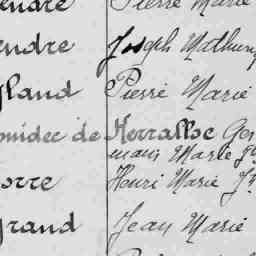 endre Pierre Marie
endre Joseph Mathurin
fland Pierre Marie
onidec de Kerralloc
mair Marie
orre Henri Marie
grand Jean Marie